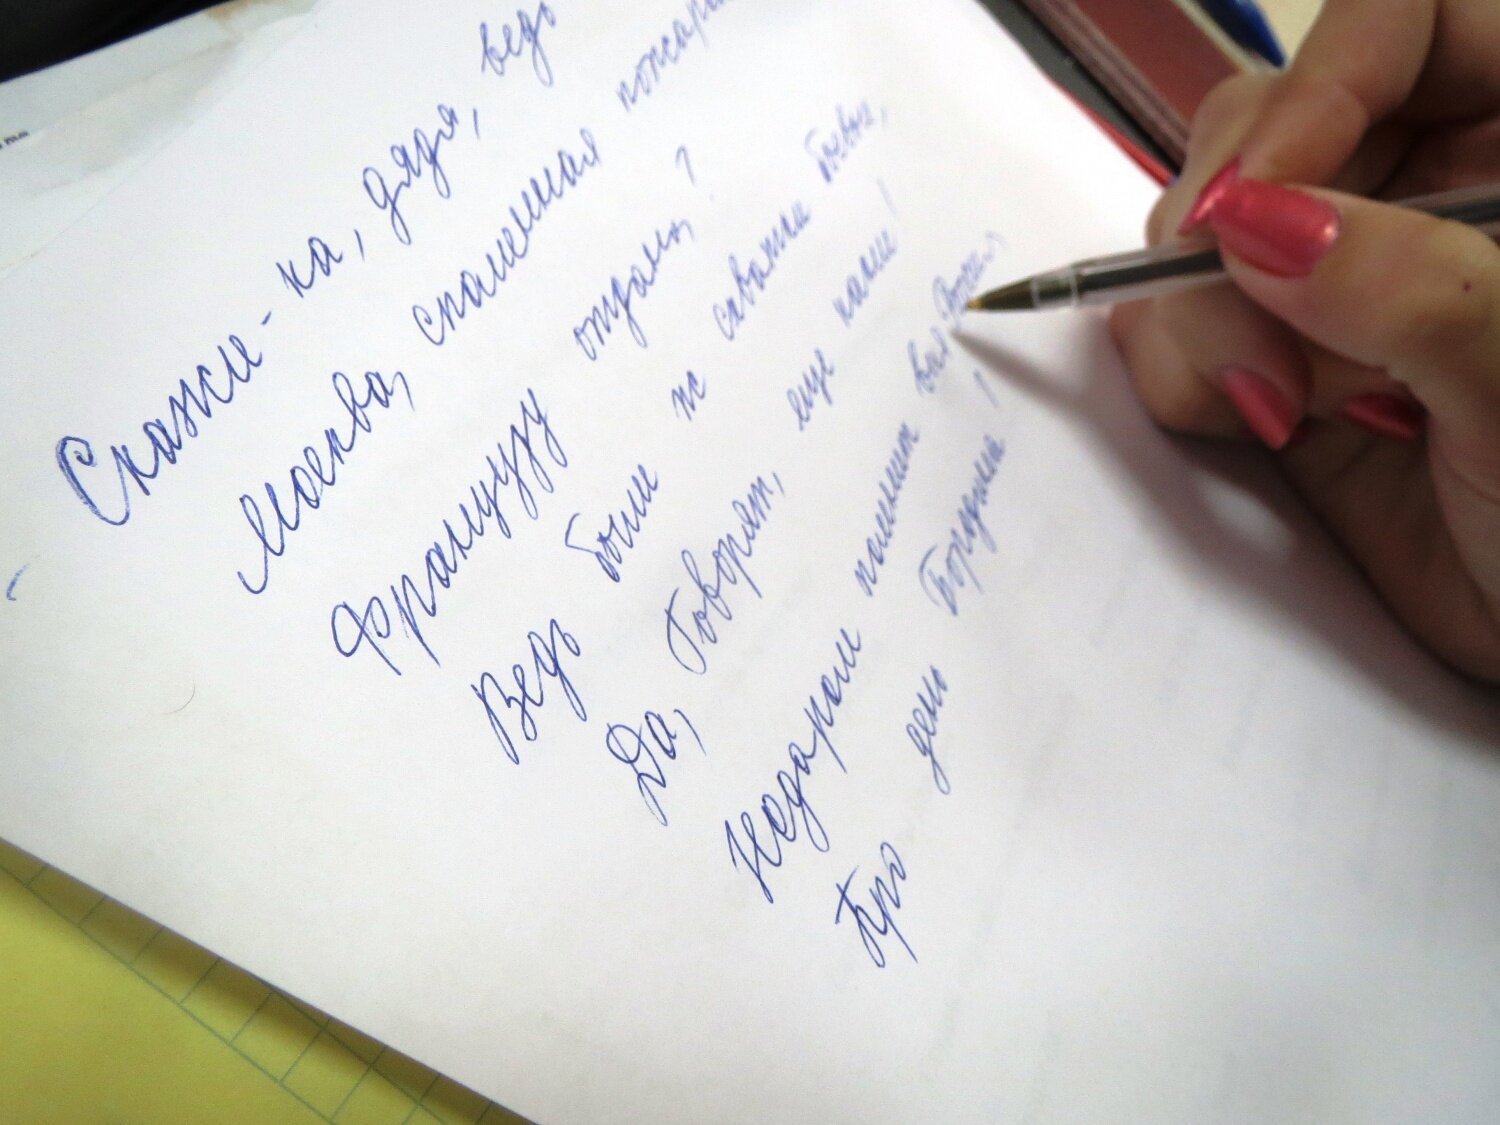 Скажи-ка, дядя, ведь
Москва, спаленная пожаро
Французу отдана?
Ведь были ж схватки боевые,
Да, Говорят, еще какие!
Недаром помнит вся Россия
Про день Бородина!